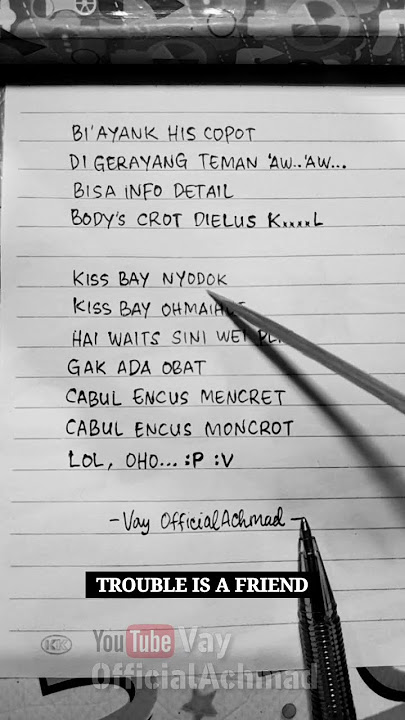 BI'AYANK HIS COPOT
DI GERAYANG TEMAN 'AW..'AW...
BISA INFO DETAIL
BODY'S CROT DIELUS KxxxxL
KISS BAY NYODOK
KISS BAY
HAI WAITS SINI WEI
GAK ADA OBAT
CABUL ENCUS MENCRET
CABUL ENCUS MONCROT
LOL, OHO... :P :V
-Vay OfficialAchmad-
TROUBLE IS A FRIEND
KK YouTube Vay
OfficialAchmad